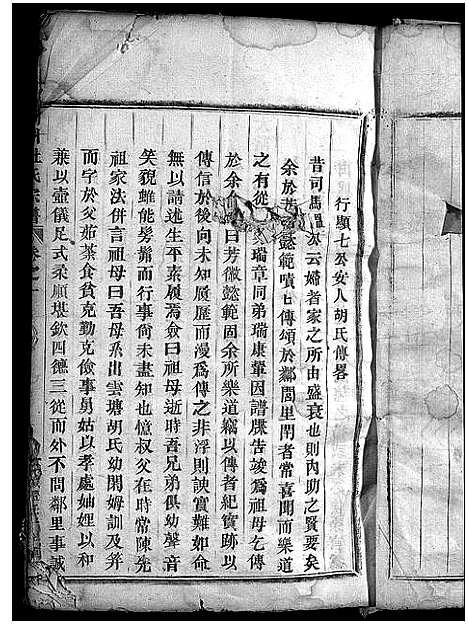 行顯七公安人胡氏傳畧
昔司馬溫公云婦者家之所由盛衰也則內助之賢要矣
余於芳懿範嘖嘖傳頌於鄰閭里閈者常喜聞而樂道
之有從瑞章同弟瑞康輩因譜牒告竣為祖母乞傳
於余余曰芳微懿範固余所樂道竊以傳者紀實跡以
傳信於後向未知履歷而漫為傳之非浮則諛實難如命
無以請述生平素履焉僉曰祖母逝時吾兄弟俱幼聲音
笑貌雖能髣髴而行事尚未盡知也憶叔父在時常陳先
祖家法併言祖母曰吾母系出雲塘胡氏幼閑姆訓及笄
而字於父茹荼食貧克勤克儉事舅姑以孝處妯娌以和
兼以壼儀足式柔順堪欽四德三從而外不問鄰里事誠
杜氏宗譜 卷之一